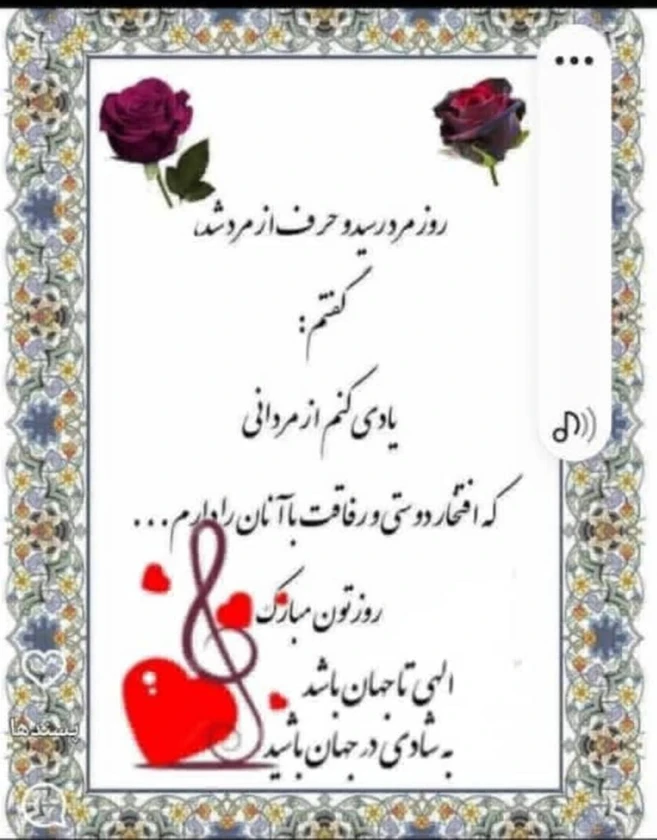 روز مرد رسید و حرف از مرد شد،
گفتم :
یادی کنم از مردانی
که افتخار دوستی و رفاقت با آنان را دارم ...
روزتون مبارک
الهی تا جهان باشد
به شادی در جهان باشید
پسندها